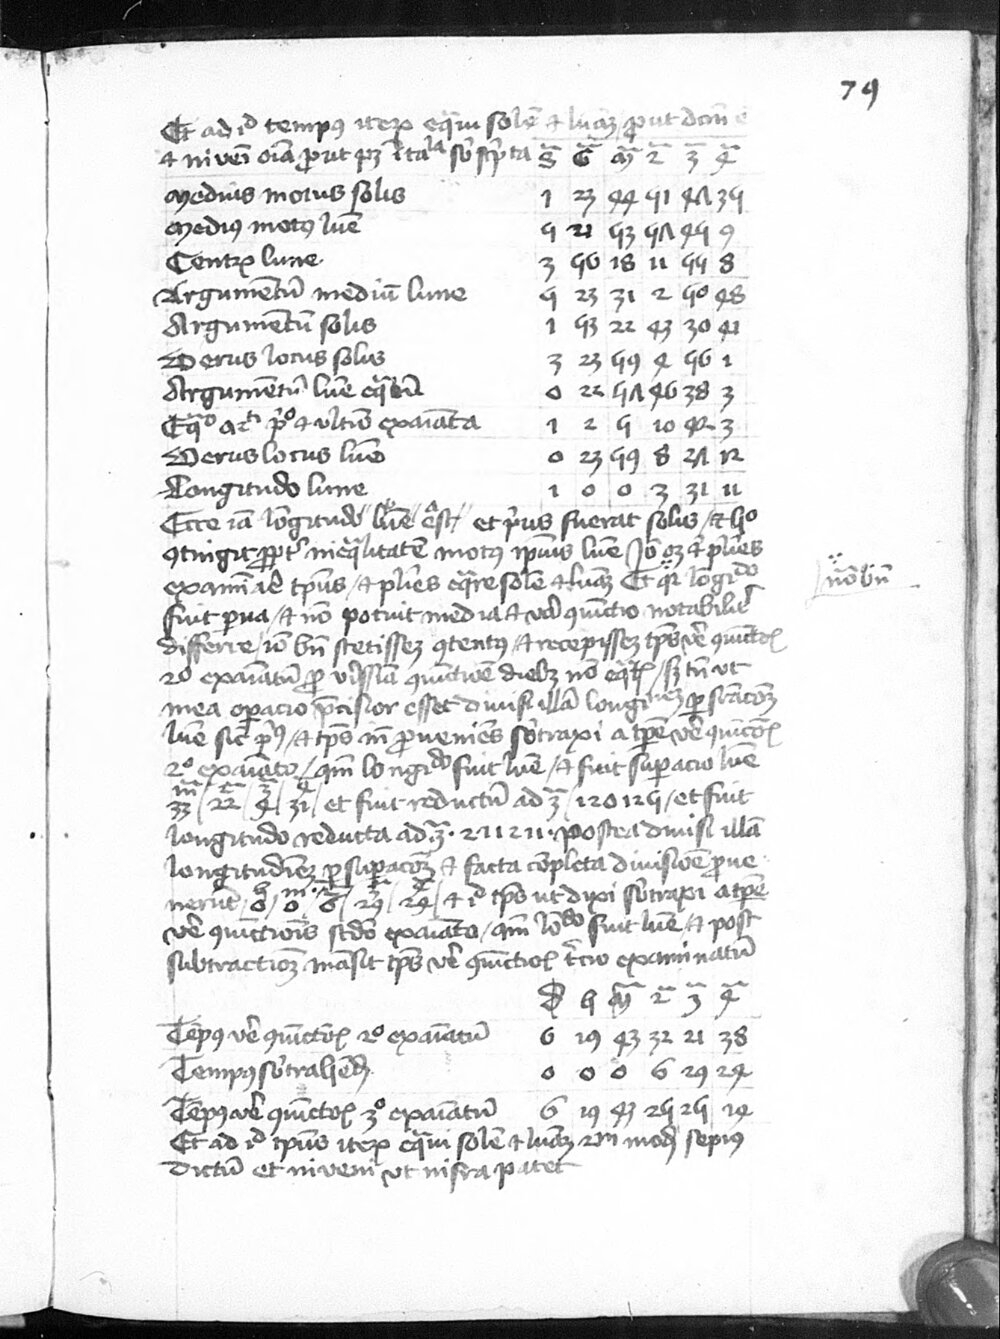 79
Et ad id tempus iterum equavi solem et lunam prout dictum est
et inveni omnia prout patet in tabula subscripta S G M 2 3 4
Medius motus solis 1 23 44 51 47 35
Medius motus lune 5 21 53 57 45 9
Centrum lune 3 56 18 11 55 8
Argumentum medium lune 5 23 31 2 50 48
Argumentum solis 1 53 22 43 30 41
Verus locus solis 3 23 59 4 56 1
Argumentum lune equatum 0 22 57 46 38 3
Equatio argumenti primo et ultimo examinata 1 2 5 10 42 3
Verus locus lune 0 23 59 8 27 12
Longitudo lune 1 0 0 3 31 11
Ecce iam longitudo lune est et prius fuerat solis et hoc
contingit propter inequalitatem motus ipsius lune Ideo oportet pluries
examinare tempus et pluries equare solem et lunam Et quia longitudo
fuit parva et non potuit media et vera coniunctio notabiliter
differre ideo bene stetissem contentus et recepissem tempus vere coniunctionis
2o examinatum pro verissima coniunctione diebus non equatis sed tamen ut
mea operacio precisior esset divisi illam longitudinem per superacionem
lune sicut prius et tempus inde proveniens subtraxi a tempore vere coniunctionis
2o examinato quoniam longitudo fuit lune et fuit superacio lune
33 22 4 31 et fuit reductum ad 3 120125 et fuit
longitudo reducta ad 3 211 211 postea divisi illam
longitudinem per superacionem et facta completa divisione prove
nerunt 0 0 6 29 24 et id tempus ut dixi subtraxi a tempore
vere coniunctionis secundo examinato quoniam longitudo fuit lune et post
subtractionem mansit tempus vere coniunctionis tercio examinatum
D h M 2 3 4
Tempus vere coniunctionis 2o examinatum 6 19 43 32 21 38
Tempus subtrahendum 0 0 0 6 29 24
Tempus vere coniunctionis 3o examinatum 6 19 43 25 25 14
Et ad id tempus iterum equavi solem et lunam secundum modum sepius
dictum et inveni ut infra patet